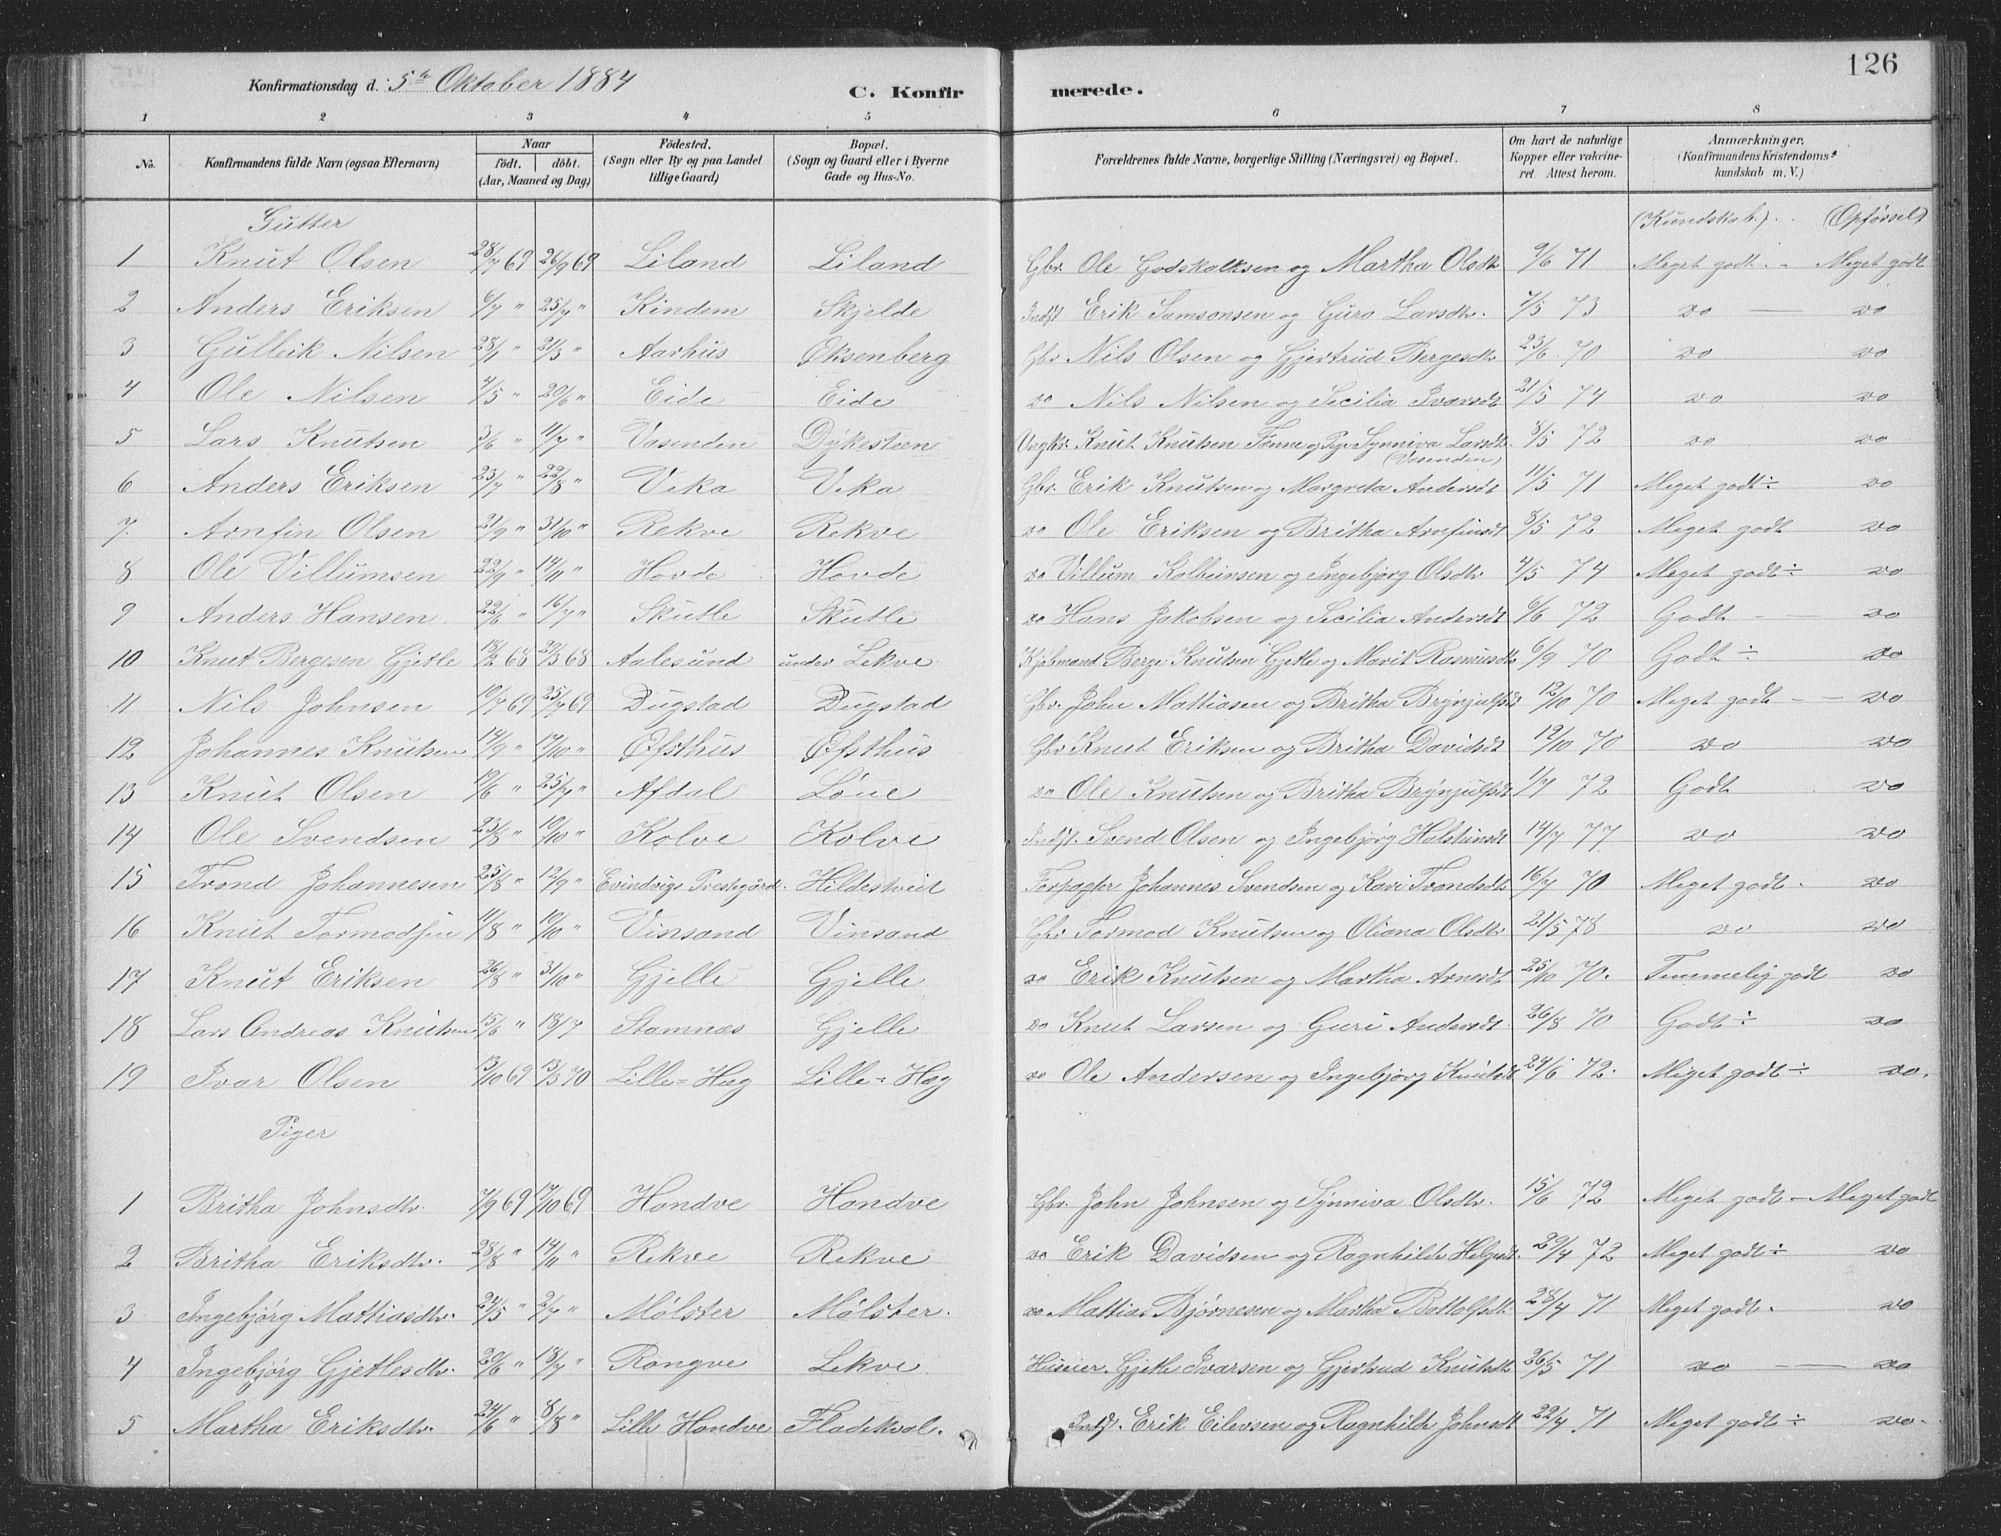 126
Konfirmationsdag d. 5te Oktober 1884
C. Konfir merede.
1 2 3 4 5 6 7 8
No. Konfirmandens fulde Navn (ogsaa Efternavn) Naar født. døbt. (Aar, Maaned og Dag) Födested. (Sogn eller By og paa Landet tillige Gaard) Bopæl. (Sogn og Gaard eller i Byerne Gade og Hus-No. Forældrenes fulde Navne, borgerlige Stilling (Næringsvei) og Bopæl. Om havt de naturlige Kopper eller vakcineret Attest herom. Anmærkninger. (Konfirmandens Kristendomskundskab m. V.)
Gutter (Kundskab). (Opførsel)
1 Knut Olsen 28/7 69 26/9 69 Liland Liland Gbr. Ole Godskalksen og Martha Olsdtr 9/6 71 Meget godt - Meget godt
2 Anders Eriksen 6/7 " 25/7 " Kindem Skjelde Indst Erik Samsonsen og Guro Larsdtr. 7/5 73 do - do
3 Gullvik Nilsen 28/1 " 21/3 " Aarhus Oksenberg Gbr Nils Olsen og Gjertrud Bergesdtr 23/6 70 do do
4 Ole Nilsen 4/5 " 20/6 " Eide Eide do Nils Nilsen og Secilia Ivarsdt 21/5 74 do do
5 Lars Knutsen 3/6 " 11/7 " Vasenden Dykesteen Ungkr. Knut Knutsen Tønne og Pige Synniva Larsdt. (Vasenden) 8/5 72 do do
6 Anders Eriksen 23/7 " 22/8 " Veka Veka Gbr. Erik Knutsen og Margreta Andersdt 11/5 71 Meget godt ÷ do
7. Arnfin Olsen 21/9 " 31/10 " Rekve Rekve do Ole Eriksen og Britha Arnfinsdt 8/5 72 Meget godt do
8 Ole Villumsen 22/9 " 14/11 " Hovde Hovde do Villum Kolbeinsen og Ingebjørg Olsdtr 4/5 74 Meget godt ÷ do
9 Anders Hansen 22/6 " 16/7 " Skutle Skutle do Hans Jakobsen og Secilia Andersdt 6/6 72 Godt - do
10 Knut Bergesen Gjetle 18/2 68 29/3 68 Aalesund under Lekve Kjøbmand Berge Knutsen Gjetle og Marit Rasmusdtr 6/9 70 Godt ÷ do
11 Nils Johnsen 10/7 69 25/7 69 Dugstad Dugstad Gbr. John Mattiasen og Britha Brynjulfsdt 12/10 70 Meget godt - do
12 Johannes Knutsen 14/9 " 17/10 " Efsthus Efsthus Gbr Knut Eriksen og Britha Davidsdt 12/10 70 do do
13 Knut Olsen 19/6 " 25/7 " Afdal Løne do Ole Knutsen og Britha Brynjulfsdt 1/7 72 Godt do
14 Ole Svendsen 23/8 " 10/10 " Kolve Kolve Indst. Svend Olsen og Ingebjørg Holstinsdt 14/7 77 do do
15 Trond Johannesen 25/8 " 12/9 " Evindvigs Prestegård. Hildestveit Forpagter Johannes Svendsen og Kari Trondsdtr 16/7 70 Meget godt. do
16 Knut Tormodsen 11/8 " 10/10 " Vinsand Vinsand Gbr Tormod Knutsen og Oliana Olsdtr 21/5 78 do do
17 Knut Eriksen 26/8 " 31/10 " Gjelle Gjelle do Erik Knutsen og Martha Arnesdt 25/10 70. Temmelig godt do
18 Lars Andreas Knutsen 15/6 " 18/7 Stamnæs Gjelle do Knut Larsen og Guri Andersdt 26/8 70 Godt ÷ do
19 Ivar Olsen 13/10 69 13/3 70 Lille-Hæg Lille-Hæg do Ole Andersen og Ingebjørg Knutsdt 24/6 72. Meget godt ÷ do.
Piger
1 Britha Johnsdtr. 7/9 69 17/10 69 Hondve Hondve Gbr. John Johnsen og Synniva Olsdtr. 15/6 72 Meget godt - Meget godt
2 Britha Eriksdtr. 28/8 " 14/11 " Rekve Rekve do Erik Davidsen og Ragnhilde Helgesdt. 29/4 72 Meget godt ÷ do
3 Ingebjørg Mattiasdtr. 24/5 " 2/7 " Mølster Mølster. do Mattias Bjørnesen og Martha Bottolfsdt 28/4 71 Meget godt. do
4 Ingebjørg Gjetlesdtr. 20/6 " 18/7 " Rongve Lekve Huseier Gjetle Ivarsen og Gjertrud Knutsdtr 26/5 71 do - do
5 Martha Eriksdtr. 24/6 " 8/8 " Lille Hondve Fladekval. Indst. Erik Eilevsen og Ragnhilde Johnsdt 22/4 71 Meget godt ÷ do.